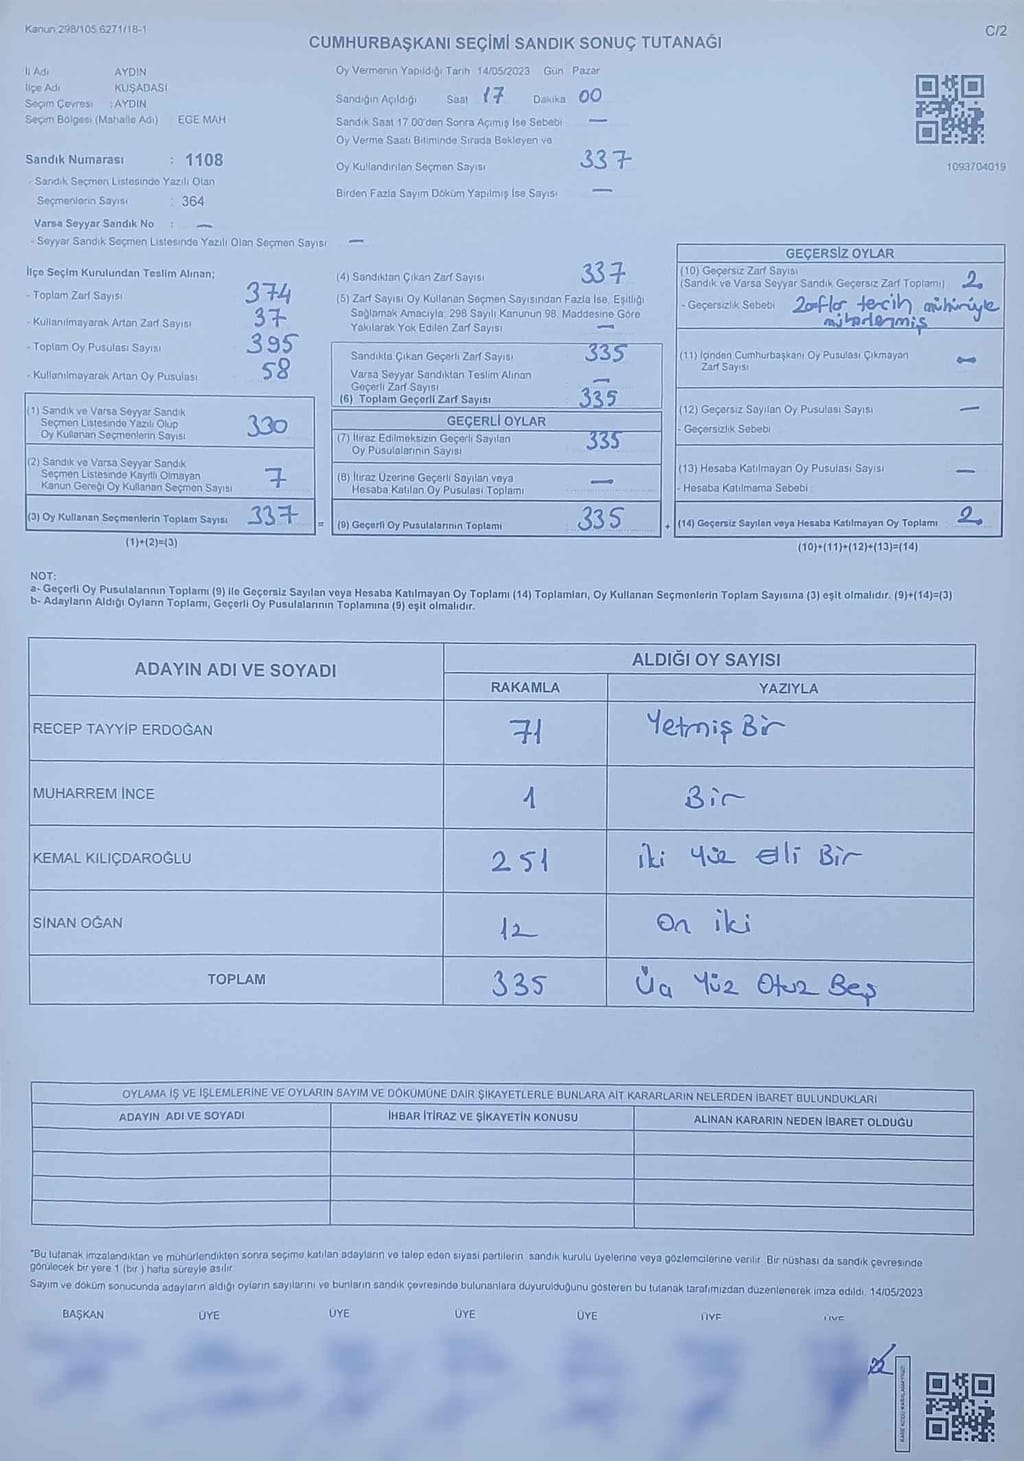 Kanun 298/105 6271/18-1
C/2
CUMHURBAŞKANI SEÇİMİ SANDIK SONUÇ TUTANAĞI
İl Adı AYDIN
İlçe Adı KUŞADASI
Seçim Çevresi : AYDIN
Seçim Bölgesi (Mahalle Adı) EGE MAH
Sandık Numarası : 1108
- Sandık Seçmen Listesinde Yazılı Olan
Seçmenlerin Sayısı : 364
Varsa Seyyar Sandık No : —
- Seyyar Sandık Seçmen Listesinde Yazılı Olan Seçmen Sayısı —
Oy Vermenin Yapıldığı Tarih 14/05/2023 Gün Pazar
Sandığın Açıldığı Saat 17 Dakika 00
Sandık Saat 17 00'den Sonra Açımış İse Sebebi —
Oy Verme Saati Bitiminde Sırada Bekleyen ve
Oy Kullandırılan Seçmen Sayısı 337
Birden Fazla Sayım Döküm Yapılmış İse Sayısı —
1093704019
İlçe Seçim Kurulundan Teslim Alınan;
- Toplam Zarf Sayısı 374
- Kullanılmayarak Artan Zarf Sayısı 37
- Toplam Oy Pusulası Sayısı 395
- Kullanılmayarak Artan Oy Pusulası 58
(1) Sandık ve Varsa Seyyar Sandık
Seçmen Listesinde Yazılı Olup
Oy Kullanan Seçmenlerin Sayısı 330
(2) Sandık ve Varsa Seyyar Sandık
Seçmen Listesinde Kayıtlı Olmayan
Kanun Gereği Oy Kullanan Seçmen Sayısı 7
(3) Oy Kullanan Seçmenlerin Toplam Sayısı 337 =
(1)+(2)=(3)
(4) Sandıktan Çıkan Zarf Sayısı 337
(5) Zarf Sayısı Oy Kullanan Seçmen Sayısından Fazla İse, Eşitliği
Sağlamak Amacıyla; 298 Sayılı Kanunun 98. Maddesine Göre
Yakılarak Yok Edilen Zarf Sayısı —
Sandıkla Çıkan Geçerli Zarf Sayısı 335
Varsa Seyyar Sandıktan Teslim Alınan
Geçerli Zarf Sayısı —
(6) Toplam Geçerli Zarf Sayısı 335
GEÇERLİ OYLAR
(7) İtiraz Edilmeksizin Geçerli Sayılan
Oy Pusulalarının Sayısı 335
(8) İtiraz Üzerine Geçerli Sayılan veya
Hesaba Katılan Oy Pusulası Toplamı —
(9) Geçerli Oy Pusulalarının Toplamı 335 +
GEÇERSİZ OYLAR
(10) Geçersiz Zarf Sayısı
(Sandık ve Varsa Seyyar Sandık Geçersiz Zarf Toplamı) 2
- Geçersizlik Sebebi tercih mühürüyle
mühürlenmiş
(11) İçinden Cumhurbaşkanı Oy Pusulası Çıkmayan
Zarf Sayısı —
(12) Geçersiz Sayılan Oy Pusulası Sayısı —
- Geçersizlik Sebebi
(13) Hesaba Katılmayan Oy Pusulası Sayısı —
- Hesaba Katılmama Sebebi
(14) Geçersiz Sayılan veya Hesaba Katılmayan Oy Toplamı 2
(10)+(11)+(12)+(13)=(14)
NOT:
a- Geçerli Oy Pusulalarının Toplamı (9) ile Geçersiz Sayılan veya Hesaba Katılmayan Oy Toplamı (14) Toplamları, Oy Kullanan Seçmenlerin Toplam Sayısına (3) eşit olmalıdır. (9)+(14)=(3)
b- Adayların Aldığı Oyların Toplamı, Geçerli Oy Pusulalarının Toplamına (9) eşit olmalıdır.
ADAYIN ADI VE SOYADI ALDIĞI OY SAYISI
RAKAMLA YAZIYLA
RECEP TAYYİP ERDOĞAN 71 Yetmiş Bir
MUHARREM İNCE 1 Bir
KEMAL KILIÇDAROĞLU 251 iki Yüz Elli Bir
SİNAN OĞAN 12 On iki
TOPLAM 335 Üç Yüz Otuz Beş
OYLAMA İŞ VE İŞLEMLERİNE VE OYLARIN SAYIM VE DÖKÜMÜNE DAİR ŞİKAYETLERLE BUNLARA AİT KARARLARIN NELERDEN İBARET BULUNDUKLARI
ADAYIN ADI VE SOYADI İHBAR İTİRAZ VE ŞİKAYETİN KONUSU ALINAN KARARIN NEDEN İBARET OLDUĞU
*Bu tutanak imzalandıktan ve mühürlendikten sonra seçime katılan adayların ve talep eden siyasi partilerin sandık kurulu üyelerine veya gözlemcilerine verilir. Bir nüshası da sandık çevresinde
görülecek bir yere 1 (bir ) hafta süreyle asılır.
Sayım ve döküm sonucunda adayların aldığı oyların sayılarını ve bunların sandık çevresinde bulunanlara duyurulduğunu gösteren bu tutanak tarafımızdan düzenlenerek imza edildi. 14/05/2023
BAŞKAN ÜYE ÜYE ÜYE ÜYE ÜYE ÜYE